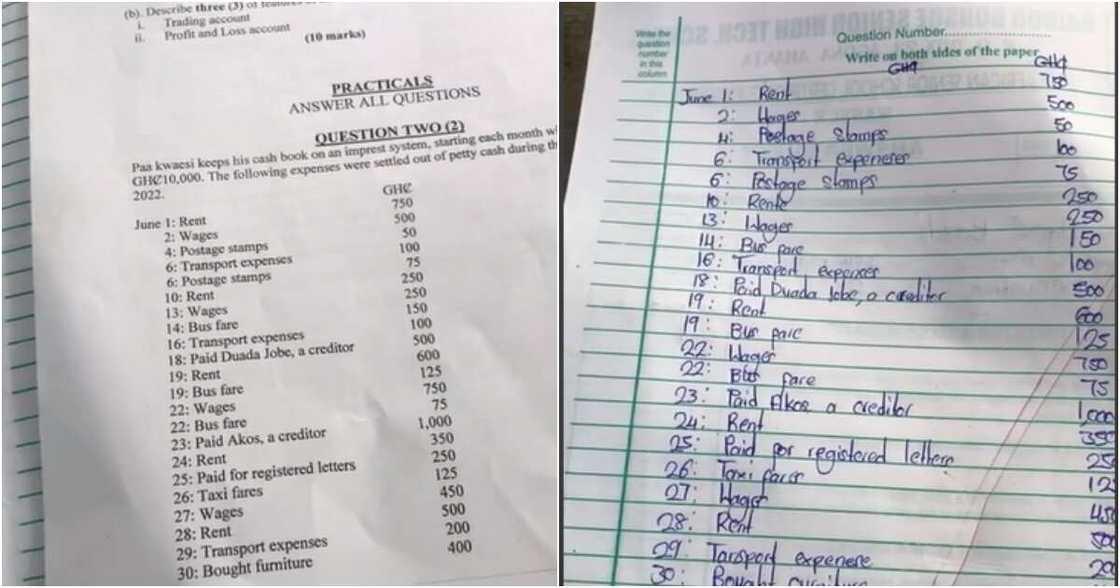 (b). Describe three (3) of
i. Trading account
ii. Profit and Loss account
(10 marks)
PRACTICALS
ANSWER ALL QUESTIONS
QUESTION TWO (2)
Paa kwaesi keeps his cash book on an imprest system, starting each month
GH₵10,000. The following expenses were settled out of petty cash during
2022.
GH₵
June 1: Rent 750
2: Wages 500
4: Postage stamps 50
6: Transport expenses 100
6: Postage stamps 75
10: Rent 250
13: Wages 250
14: Bus fare 150
16: Transport expenses 100
18: Paid Duada Jobe, a creditor 500
19: Rent 600
19: Bus fare 125
22: Wages 750
22: Bus fare 75
23: Paid Akos, a creditor 1,000
24: Rent 350
25: Paid for registered letters 250
26: Taxi fares 125
27: Wages 450
28: Rent 500
29: Transport expenses 200
30: Bought furniture 400
Write the
question
number
in this
column
Question Number
Write on both sides of the paper
GH₵ GH₵
June 1: Rent 750
2: Wages 500
4: Postage Stamps 50
6: Transport expeneses 100
6: Postage stamps 75
10: Rente 250
13: Wages 250
14: Bus fare 150
16: Transport expenses 100
18: Paid Duada Jobe, a creditor 500
19: Rent 600
19: Bus fare 125
22: Wages 750
22: Bus fare 75
23: Paid Akos a creditor 1,000
24: Rent 350
25: Paid for registered letters 25
26: Taxi fares 12
27: Wages 45
28: Rent 50
29: Transport expenese 20
30: Bought furniture